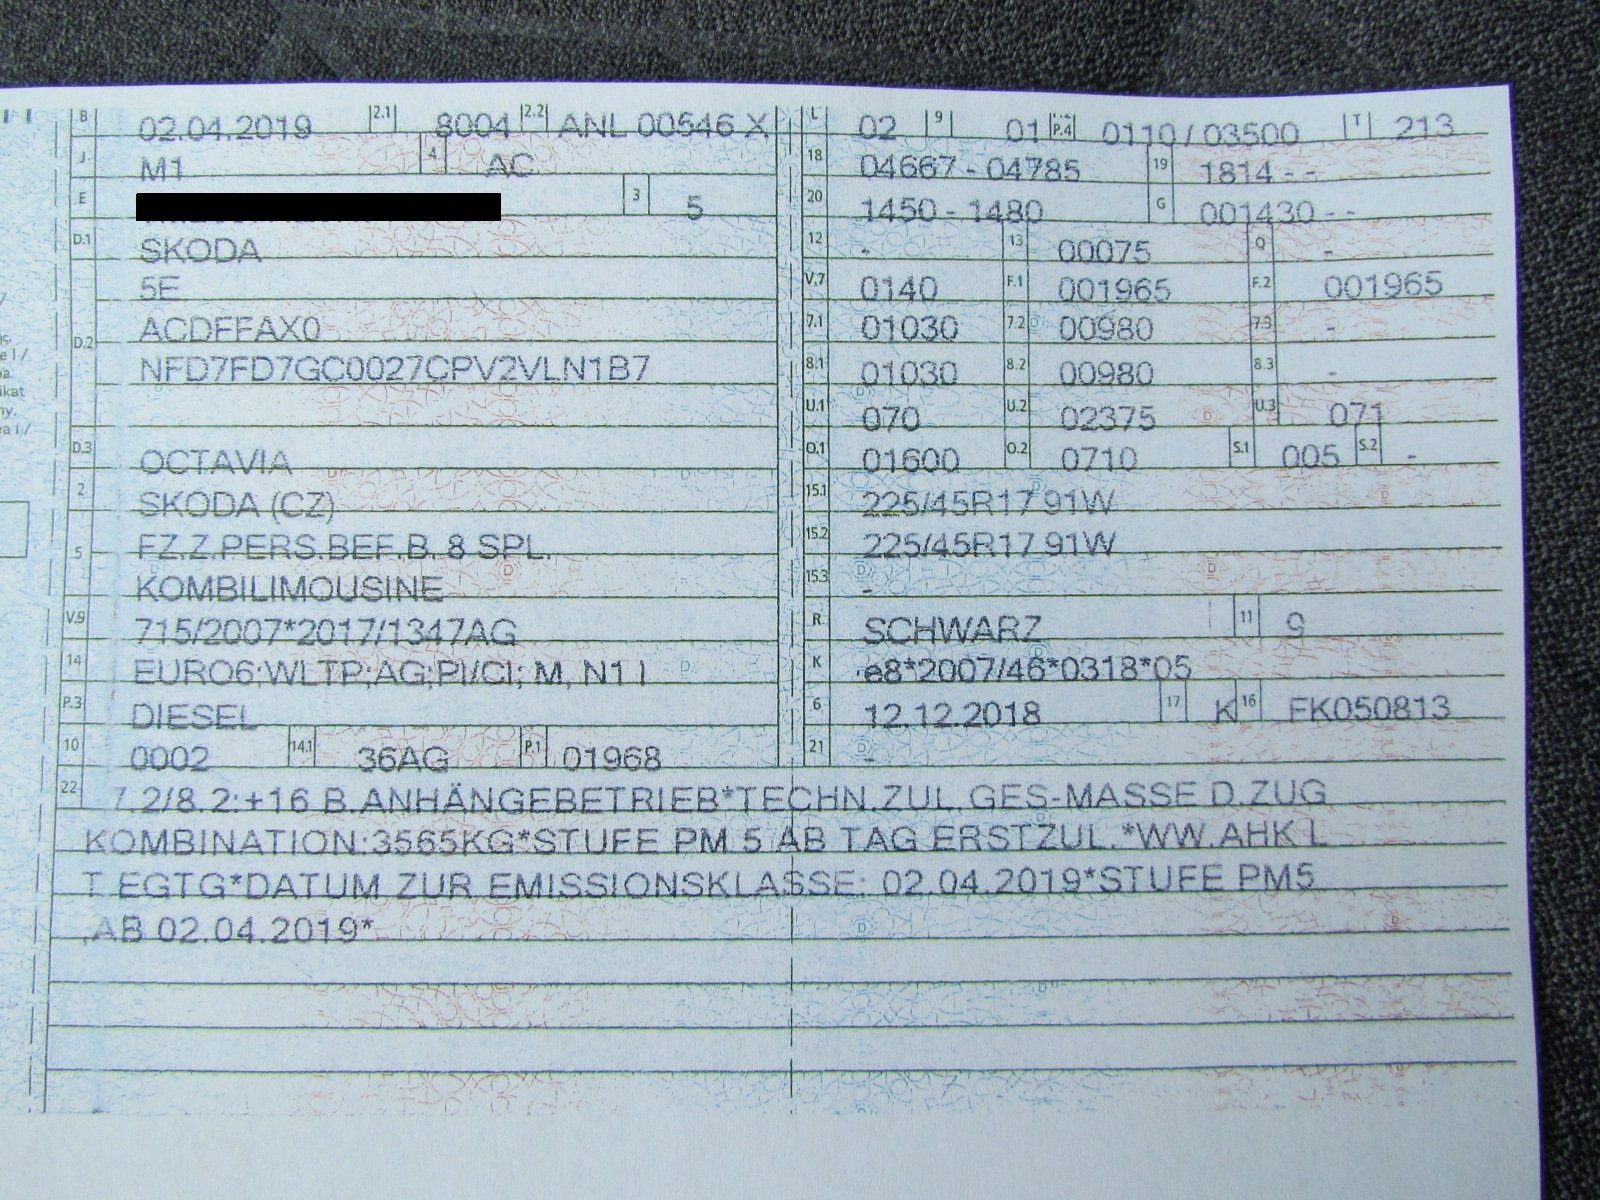 B 02.04.2019 2.1 8004 2.2 ANL 00546 X
J M1 4 AC
E 3 5
D.1 SKODA
5E
D.2 ACDFFAX0
NFD7FD7GC0027CPV2VLN1B7
D.3 OCTAVIA
2 SKODA (CZ)
5 FZ.Z.PERS.BEF.B. 8 SPL.
KOMBILIMOUSINE
V.9 715/2007*2017/1347AG
14 EURO6;WLTP;AG;PI/CI; M, N1 I
P.3 DIESEL
10 0002 14.1 36AG P.1 01968
L 02 9 01 P.4 0110 / 03500 T 213
18 04667 - 04785 19 1814 - -
20 1450 - 1480 G 001430 - -
12 - 13 00075 Q -
V.7 0140 F.1 001965 F.2 001965
7.1 01030 7.2 00980 7.3 -
8.1 01030 8.2 00980 8.3 -
U.1 070 U.2 02375 U.3 071
O.1 01600 O.2 0710 S.1 005 S.2 -
15.1 225/45R17 91W
15.2 225/45R17 91W
15.3 -
R SCHWARZ 11 9
K e8*2007/46*0318*05
6 12.12.2018 17 K 16 FK050813
21 -
22 7.2/8.2:+16 B.ANHÄNGEBETRIEB*TECHN.ZUL.GES-MASSE D.ZUG
KOMBINATION:3565KG*STUFE PM 5 AB TAG ERSTZUL.*WW.AHK L
T.EGTG*DATUM ZUR EMISSIONSKLASSE: 02.04.2019*STUFE PM5
,AB 02.04.2019*